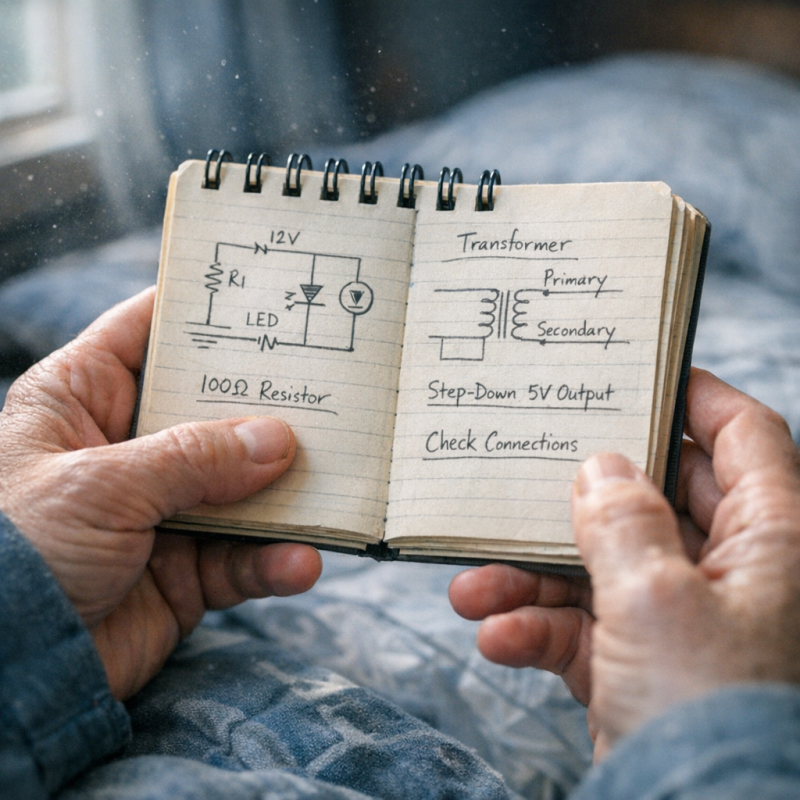 12V
R1
LED
100Ω Resistor
Transformer
Primary
Secondary
Step-Down 5V Output
Check Connections